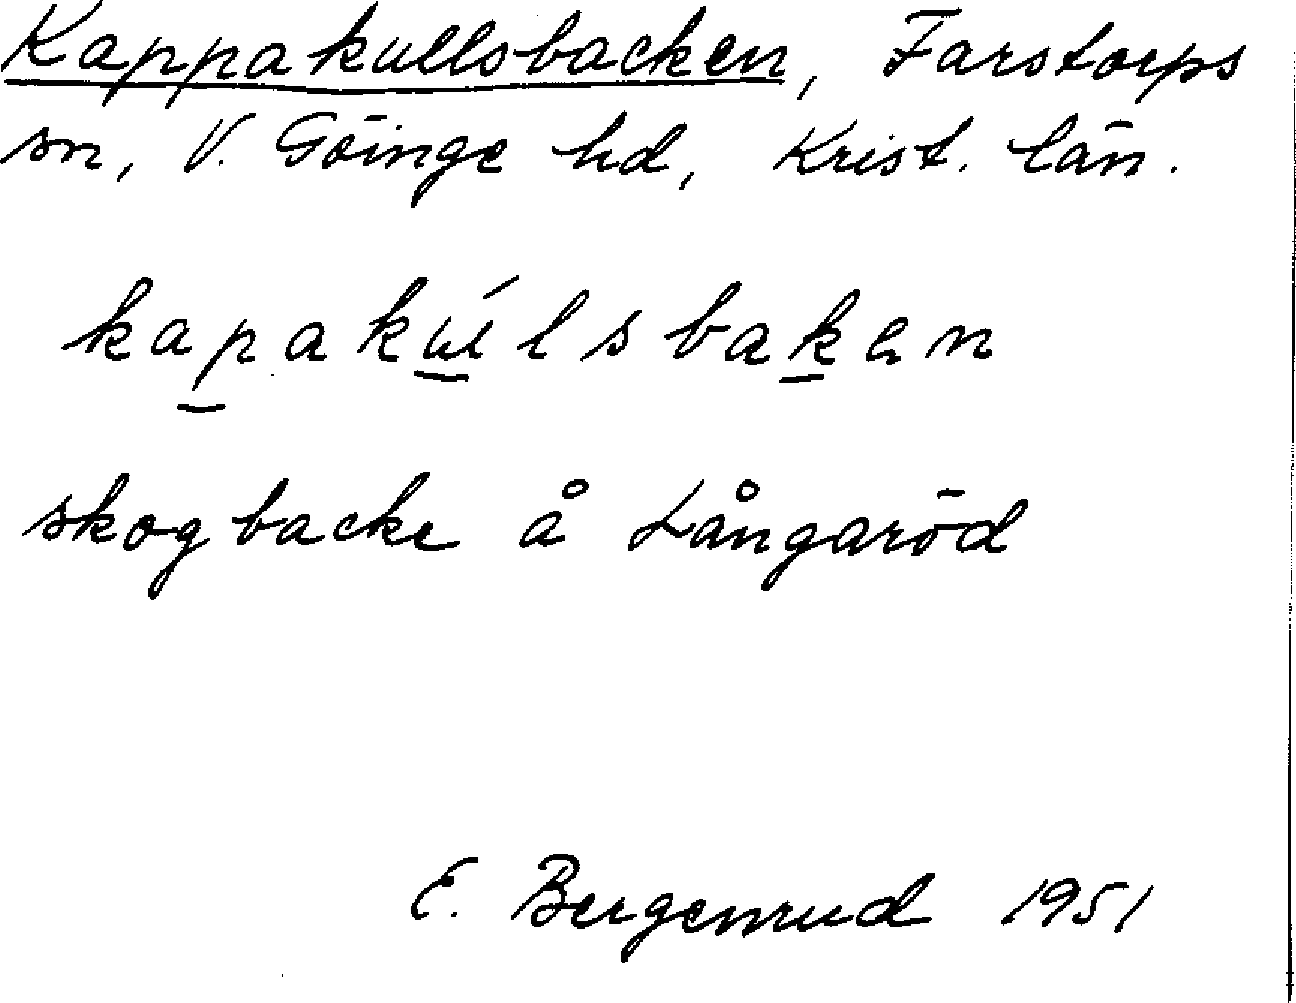 Kappakullsbacken, Farstorps
sn, V. Göinge hd, Krist. län.
kapakúlsbakən
skogbacke å Långaröd
E. Bergenrud 1951